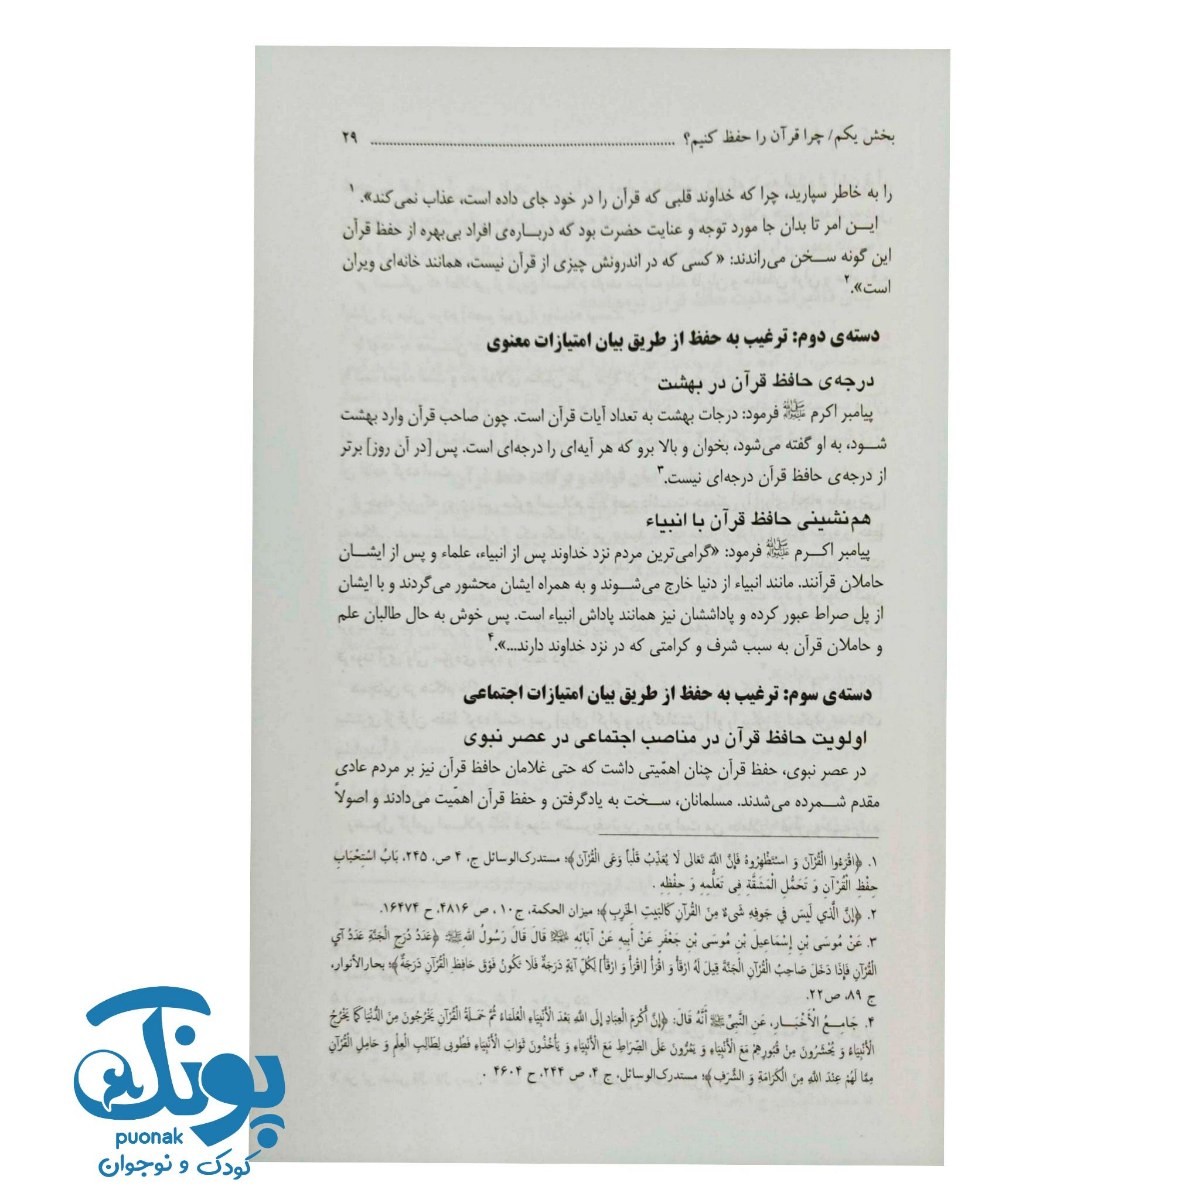 بخش یکم/ چرا قرآن را حفظ کنیم؟ ................................................................................ ۲۹
را به خاطر سپارید، چرا که خداوند قلبی که قرآن را در خود جای داده است، عذاب نمی‌کند».۱
این امر تا بدان جا مورد توجه و عنایت حضرت بود که درباره‌ی افراد بی‌بهره از حفظ قرآن
این گونه سخن می‌راندند: « کسی که در اندرونش چیزی از قرآن نیست، همانند خانه‌ای ویران
است».۲
دسته‌ی دوم: ترغیب به حفظ از طریق بیان امتیازات معنوی
درجه‌ی حافظ قرآن در بهشت
پیامبر اکرم ﷺ فرمود: درجات بهشت به تعداد آیات قرآن است. چون صاحب قرآن وارد بهشت
شود، به او گفته می‌شود، بخوان و بالا برو که هر آیه‌ای را درجه‌ای است. پس [در آن روز] برتر
از درجه‌ی حافظ قرآن درجه‌ای نیست.۳
هم‌نشینی حافظ قرآن با انبیاء
پیامبر اکرم ﷺ فرمود: «گرامی‌ترین مردم نزد خداوند پس از انبیاء، علماء و پس از ایشان
حاملان قرآنند. مانند انبیاء از دنیا خارج می‌شوند و به همراه ایشان محشور می‌گردند و با ایشان
از پل صراط عبور کرده و پاداششان نیز همانند پاداش انبیاء است. پس خوش به حال طالبان علم
و حاملان قرآن به سبب شرف و کرامتی که در نزد خداوند دارند...».۴
دسته‌ی سوم: ترغیب به حفظ از طریق بیان امتیازات اجتماعی
اولویت حافظ قرآن در مناصب اجتماعی در عصر نبوی
در عصر نبوی، حفظ قرآن چنان اهمّیتی داشت که حتی غلامان حافظ قرآن نیز بر مردم عادی
مقدم شمرده می‌شدند. مسلمانان، سخت به یادگرفتن و حفظ قرآن اهمّیت می‌دادند و اصولاً
۱. ﴿اقْرَءُوا الْقُرْآنَ وَ اسْتَظْهِرُوهُ فَإِنَّ اللَّهَ تَعَالَى لَا يُعَذِّبُ قَلْباً وَعَى الْقُرْآنَ﴾؛ مستدرک‌الوسائل ج، ۴ ص، ۲۴۵، بَابُ اسْتِحْبَابِ
حِفْظِ الْقُرْآنِ وَ تَحَمُّلِ الْمَشَقَّةِ فِي تَعَلُّمِهِ وَ حِفْظِهِ .
۲. ﴿إِنَّ الَّذِي لَيْسَ فِي جَوْفِهِ شَيْءٌ مِنَ الْقُرْآنِ كَالْبَيْتِ الْخَرِبِ﴾؛ میزان الحکمة، ج۱۰ ، ص ۴۸۱۶، ح ۱۶۴۷۴.
۳. عَنْ مُوسَى بْنِ إِسْمَاعِيلَ بْنِ مُوسَى بْنِ جَعْفَرٍ عَنْ أَبِيهِ عَنْ آبَائِهِ قَالَ قَالَ رَسُولُ اللَّهِ ﷺ ﴿عَدَدُ دَرَجِ الْجَنَّةِ عَدَدُ آيِ
الْقُرْآنِ فَإِذَا دَخَلَ صَاحِبُ الْقُرْآنِ الْجَنَّةَ قِيلَ لَهُ ارْقَأْ وَ اقْرَأْ [اقْرَأْ وَ ارْقَأْ] لِكُلِّ آيَةٍ دَرَجَةٌ فَلَا تَكُونُ فَوْقَ حَافِظِ الْقُرْآنِ دَرَجَةٌ﴾؛ بحارالأنوار،
ج ۸۹، ص۲۲.
۴. جَامِعُ الْأَخْبَارِ، عَنِ النَّبِيِّ ﷺ أَنَّهُ قَالَ: ﴿إِنَّ أَكْرَمَ الْعِبَادِ إِلَى اللَّهِ بَعْدَ الْأَنْبِيَاءِ الْعُلَمَاءُ ثُمَّ حَمَلَةُ الْقُرْآنِ يَخْرُجُونَ مِنَ الدُّنْيَا كَمَا يَخْرُجُ
الْأَنْبِيَاءُ وَ يُحْشَرُونَ مِنْ قُبُورِهِمْ مَعَ الْأَنْبِيَاءِ وَ يَمُرُّونَ عَلَى الصِّرَاطِ مَعَ الْأَنْبِيَاءِ وَ يَأْخُذُونَ ثَوَابَ الْأَنْبِيَاءِ فَطُوبَى لِطَالِبِ الْعِلْمِ وَ حَامِلِ الْقُرْآنِ
مِمَّا لَهُمْ عِنْدَ اللَّهِ مِنَ الْكَرَامَةِ وَ الشَّرَفِ﴾؛ مستدرک‌الوسائل، ج ۴، ص ۲۴۴، ح ۴۶۰۴ .
پونک
puonak
کودک و نوجوان